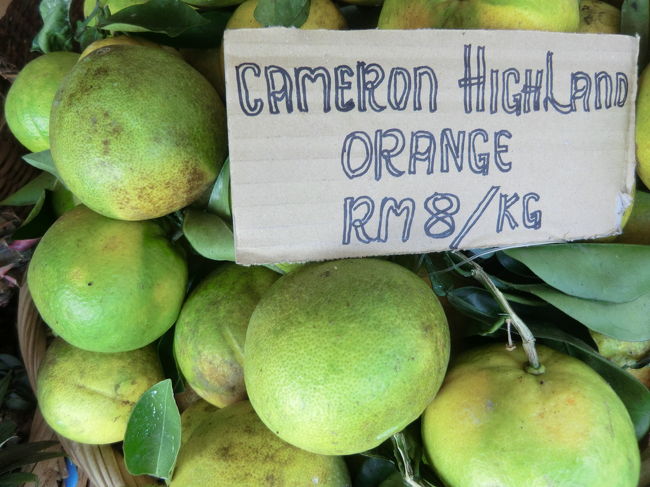 CAMERON HIGHLAND
ORANGE
RM8/KG